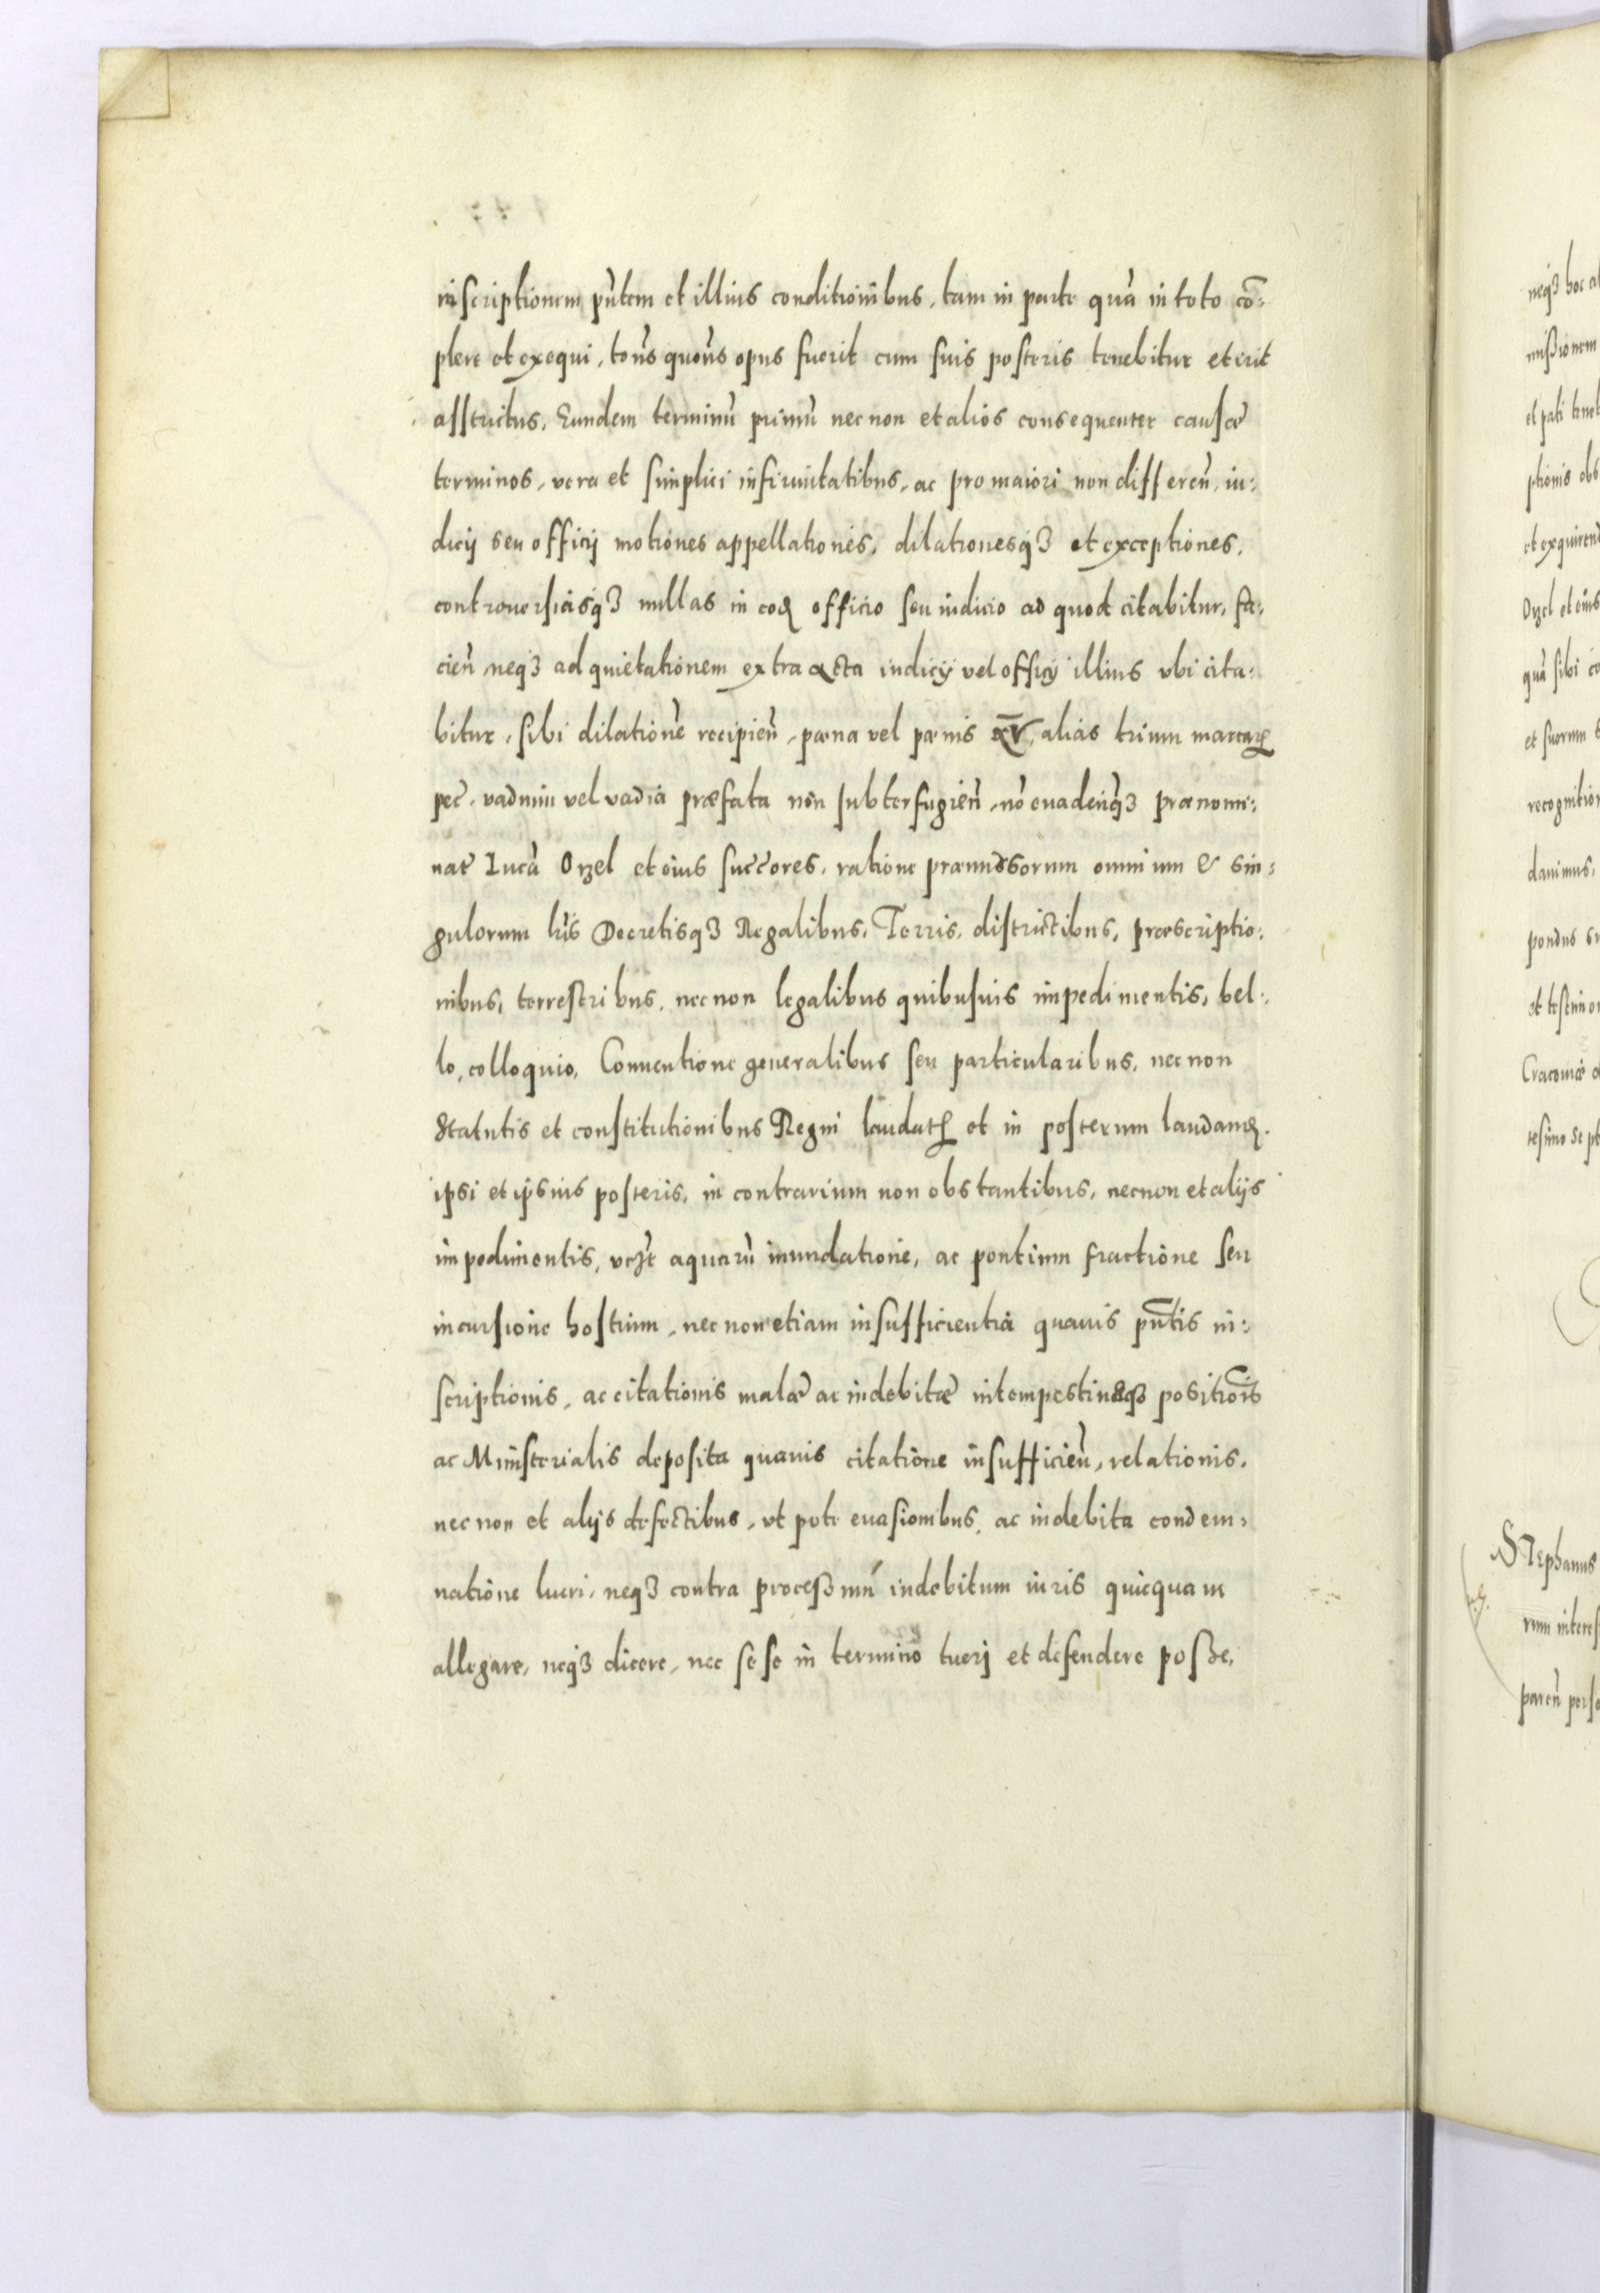 inscriptionem pñtem et illius conditionibus, tam in parte quã in toto cõ:
plere et exequi, totñs quotñs opus fuerit cum suis posteris tenebitur et erit
asstrictus, Eundem terminũ primũ nec non et alios consequenter causæ
terminos, vera et simplici infirmitatibus, ac pro maiori non differeñ, iu:
dicij seu officij motiones appellationes, dilationesqȝ et exceptiones,
controuersiasqȝ nullas in eoď officio seu iudicio ad quod citabitur, fa:
cieñ neqȝ ad quietationem extra acta iudicij vel officij illius vbi cita:
bitur, sibi dilationẽ recipieñ, pœna vel pœnis XV, alias trium marcarꝝ
pec̃. vadium vel vadia præfata non subterfugieñ, nõ euadeñqȝ prænomi:
nať Lucã Orzel et eius succ̃ores, ratione præmissorum omnium & sin:
gulorum lr̃is Decretisqȝ Regalibus, Terris, districtibus, præscriptio:
nibus, terrestribus, nec non legalibus quibusuis impedimentis, bel:
lo, colloquio, Conuentione generalibus seu particularibus, nec non
Statutis et constitutionibus Regni laudatꝭ et in posterum laudanď.
ipsi et ipsius posteris, in contrarium non obstantibus, necnon et alijs
impedimentis, vczt aquarũ inundatione, ac pontium fractione seu
incursione hostium, nec non etiam insufficientia quauis pñtis in:
scriptionis, ac citationis malæ ac indebitæ intempestiuæqȝ positiõis
ac Ministerialis deposita quauis citatione insufficieñ, relationis,
nec non et alijs defectibus, vt pote euasionibus, ac indebita condem:
natione lucri, neqȝ contra processum indebitum iuris quicquam
allegare, neqȝ dicere, nec se se in termino tuerj et defendere posse,
neqȝ hoc
missionem
et pati
ptionis obs
et
Orzel et eius
quã sibi
et suorum
recognition
dauimus,
pondus
et
Cracouiæ
Stephanus
rum interes
pareñ perso